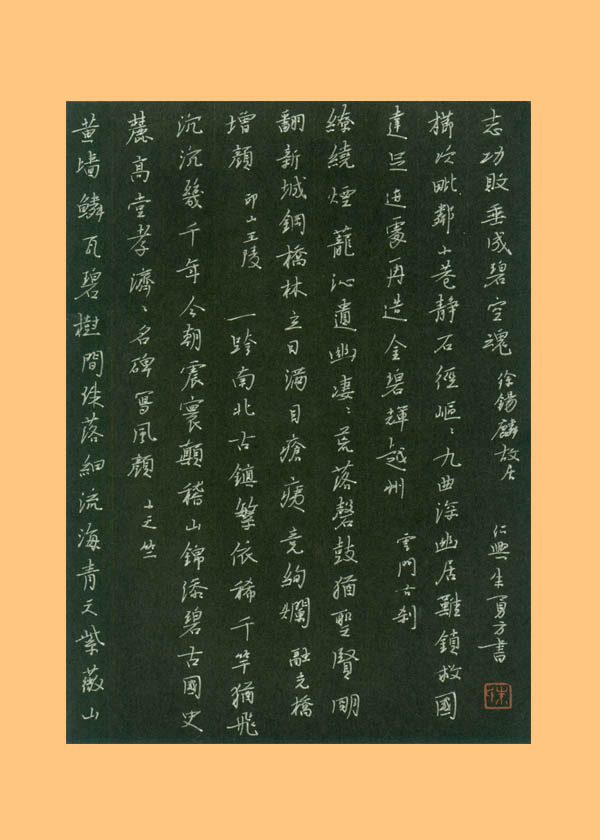 黄墻鱗瓦碧樹間珠落細流海青天紫薇山
麓高堂孝濟〻名碑寫風顏 小天竺
沉沉幾千年今朝震寰顛稽山錦添碧古國史
增顏 印山王陵 一跨南北古鎮繁依稀千竿猶飛
翻新城鋼橋林立日滿目瘡痍竟絢斕 融光橋
繚繞煙蘢沁遺幽凄〻荒落磬鼓猶聖賢明
達足迹處再造金碧輝越州 雲門古刹
櫛次毗鄰小巷靜石徑嶇〻九曲深幽居難鎖救國
志功敗垂成碧空魂 徐錫麟故居 仁興朱勇方書